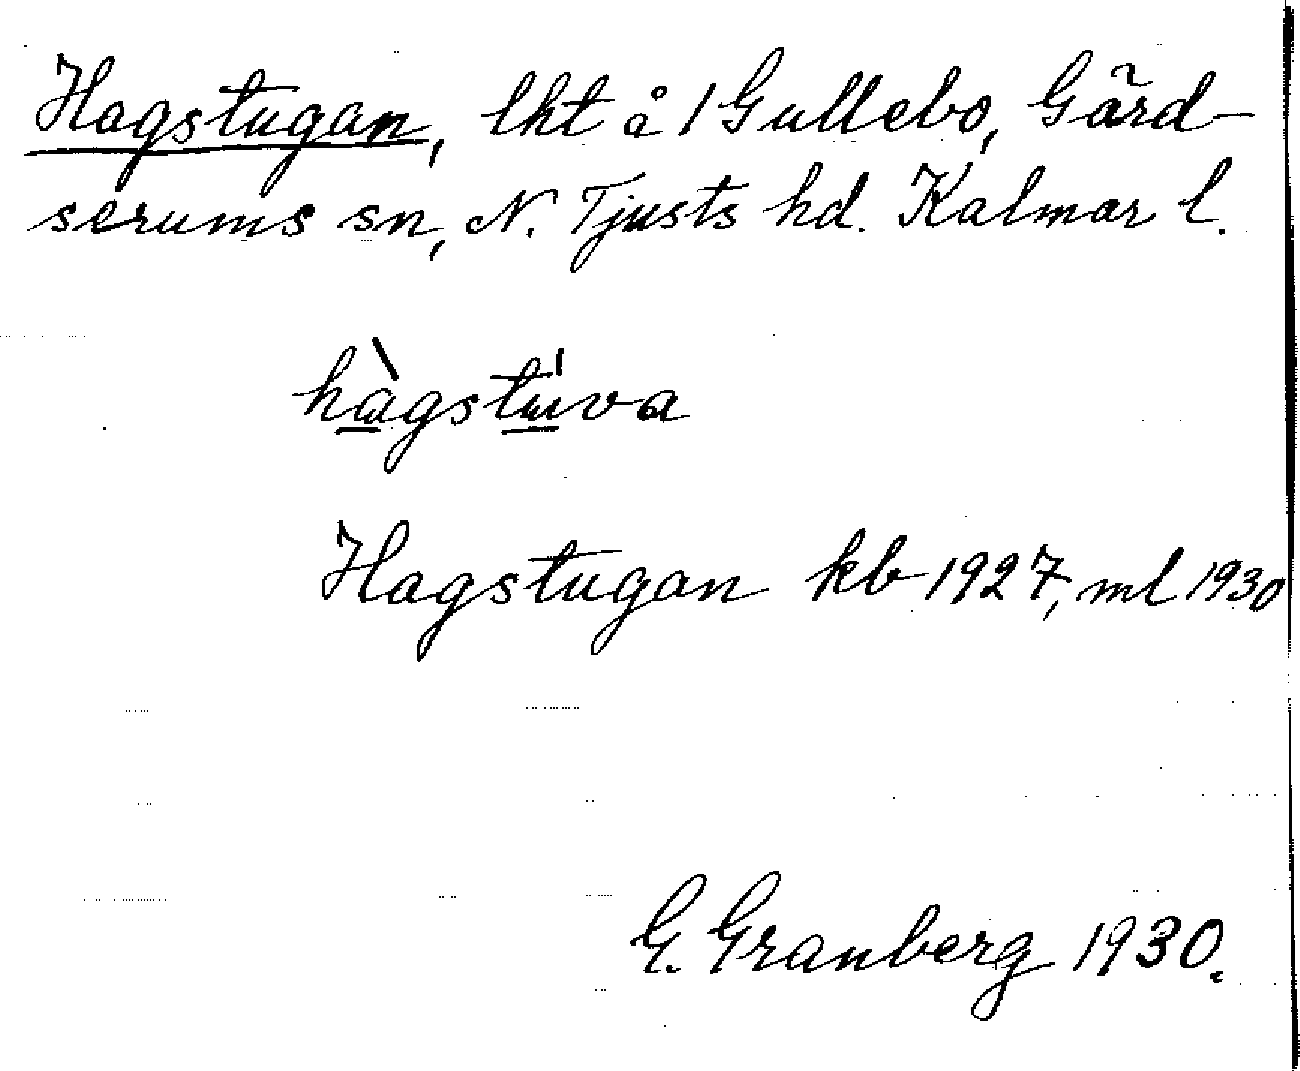 Hagstugan, lht å 1 Gullebo, Gärd-
serums sn, N. Tjusts hd. Kalmar l.
hàgstúva
Hagstugan kb 1927, ml 1930
G. Granberg 1930.